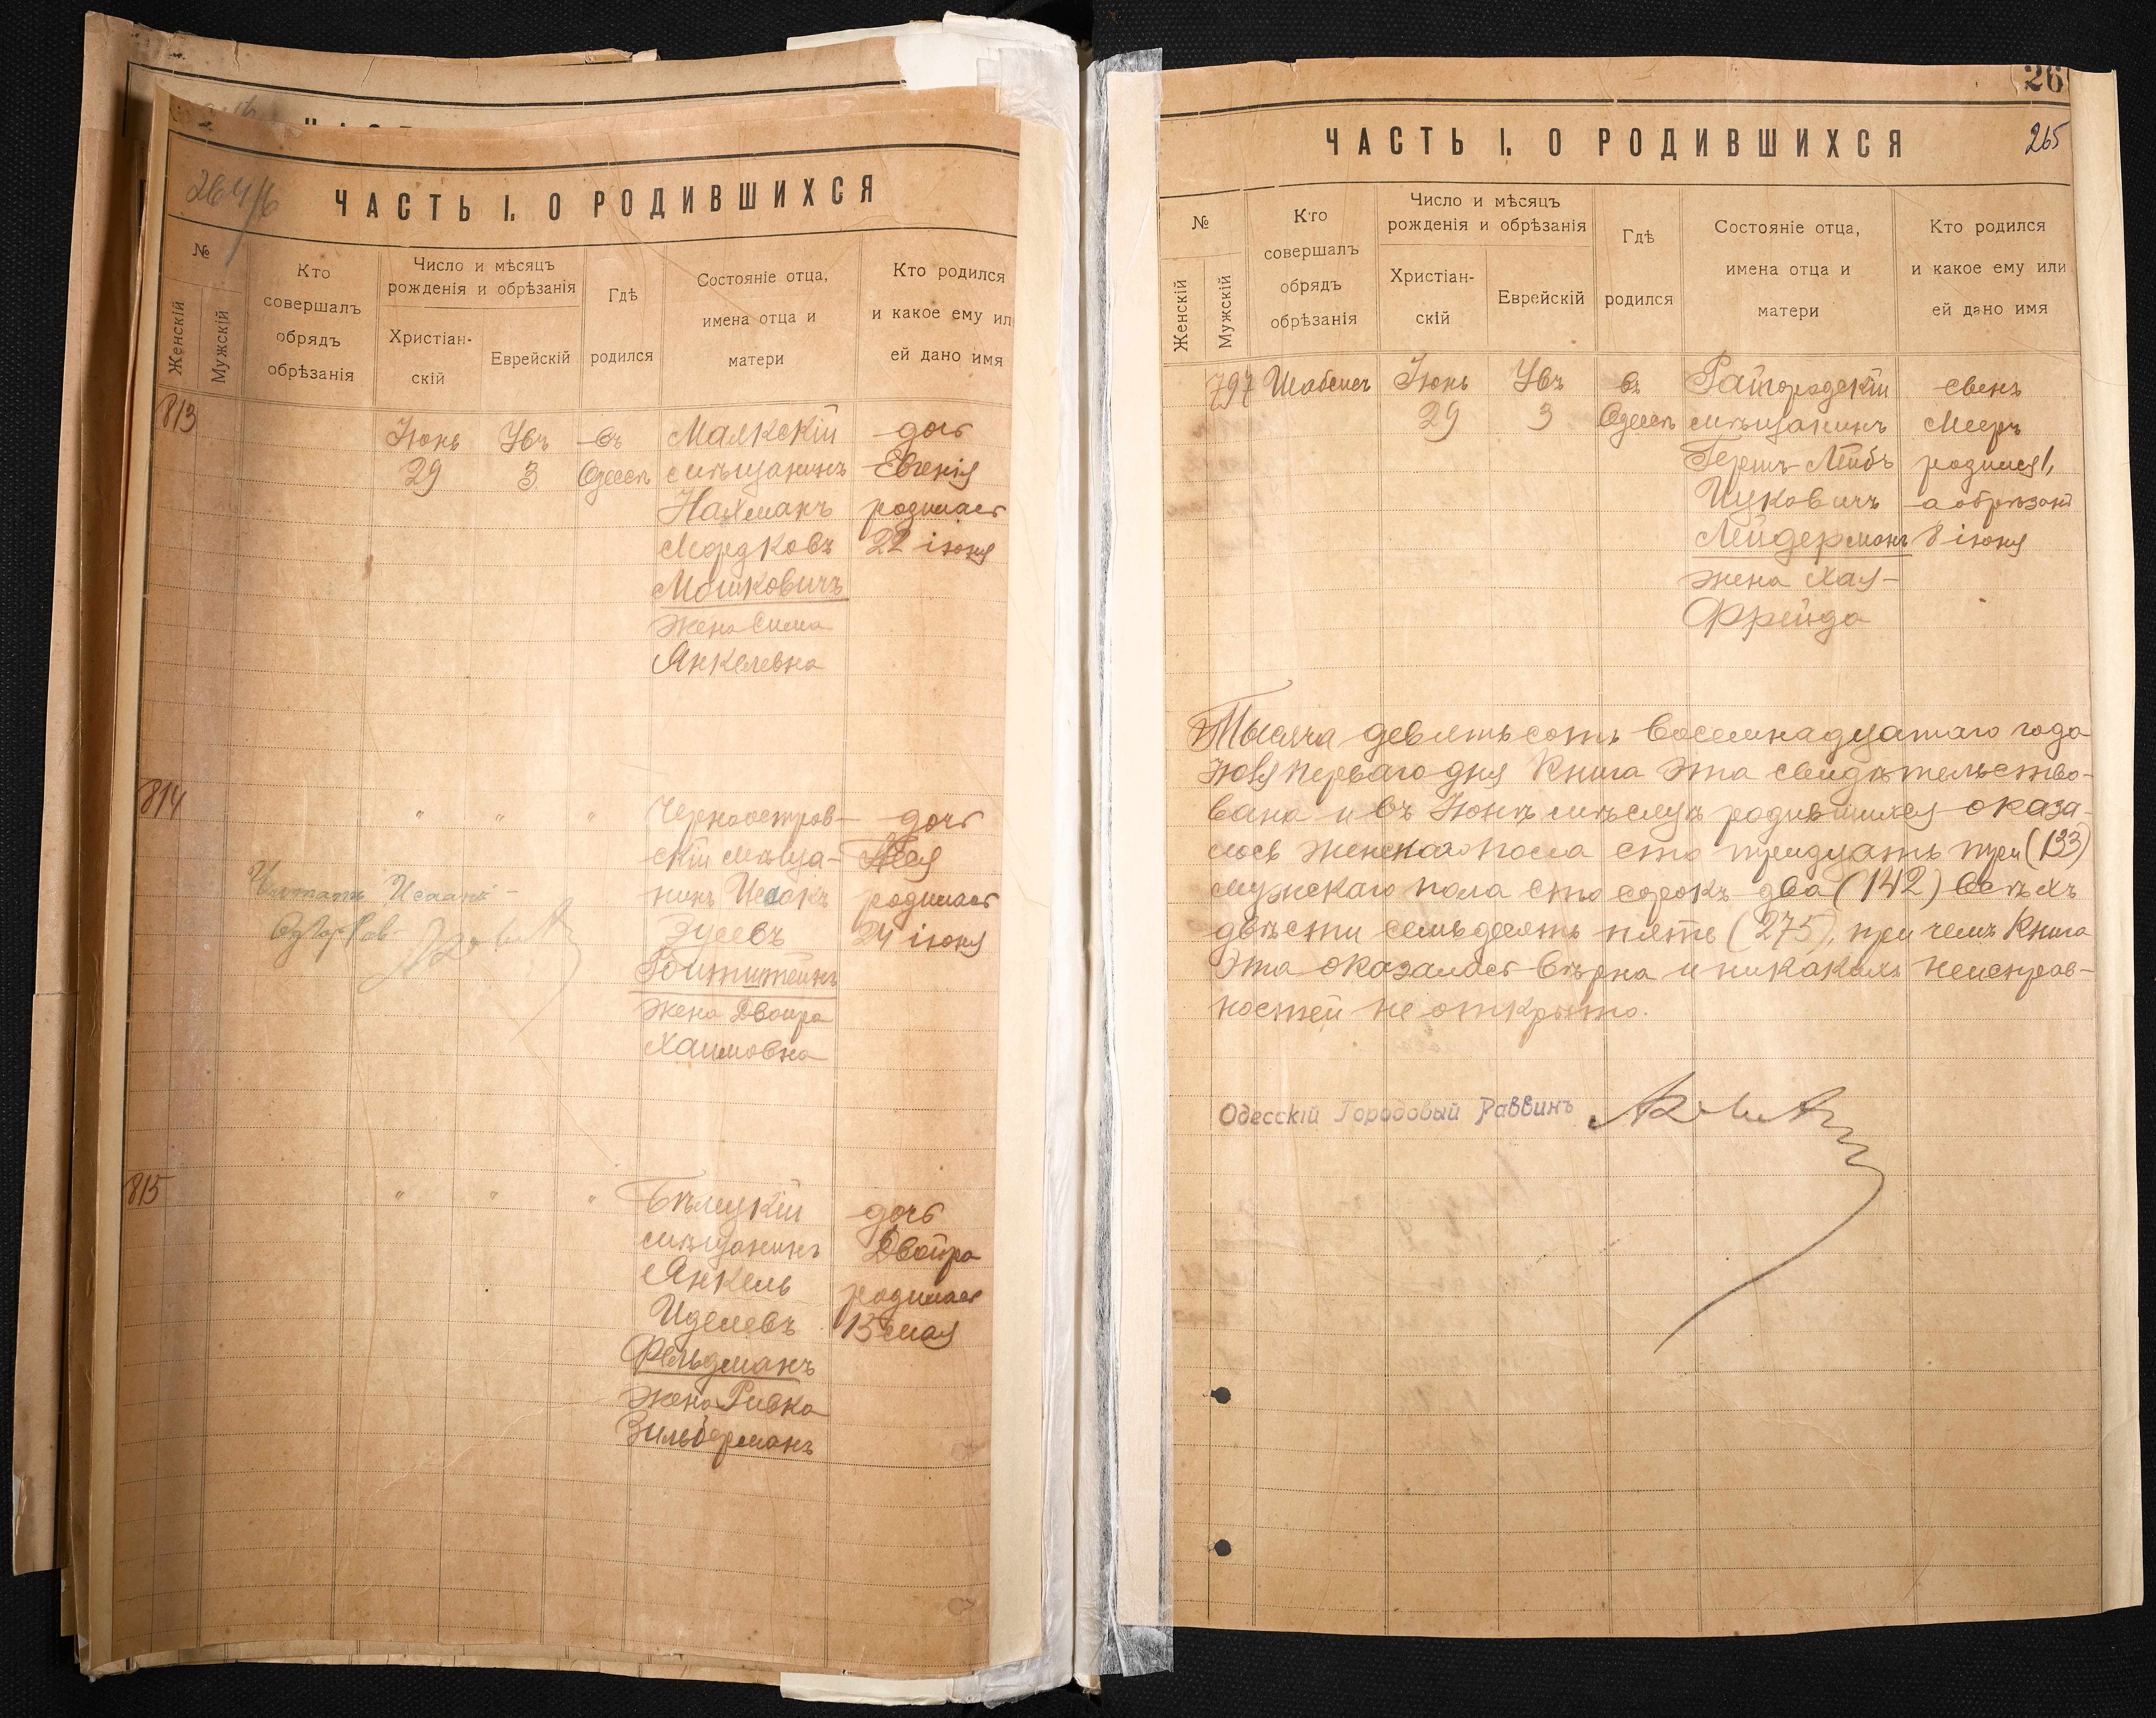 264/б
ЧАСТЬ I. О РОДИВШИХСЯ
№
Женскій
Мужскій
Кто
совершалъ
обрядъ
обрѣзанія
Число и мѣсяцъ
рожденія и обрѣзанія
Христіан-
скій
Еврейскій
Гдѣ
родился
Состояніе отца,
имена отца и
матери
Кто родился
и какое ему ил
ей дано имя
813
Іюнь
29
3
въ
Одессѣ
мѣщанинъ
Нахманъ
Мордковъ
Мошковичъ
жена Сима
Янкелевна
дочь
Евгенія
родилась
22 іюня
814
" " "
Черноостров-
скій мѣща-
нинъ Исаакъ
Зусевъ
Ройтштейнъ
жена Двойра
Хаимовна
дочь
родилась
24 іюня
Читать Исаакъ
815
" " "
Бѣлицкій
мѣщанинъ
Янкель
Иделевъ
Фельдманъ
жена Ривка
Зильберманъ
дочь
Двойра
родилась
13 мая
26
265
ЧАСТЬ I. О РОДИВШИХСЯ
№
Женскій
Мужскій
Кто
совершалъ
обрядъ
обрѣзанія
Число и мѣсяцъ
рожденія и обрѣзанія
Христіан-
скій
Еврейскій
Гдѣ
родился
Состояніе отца,
имена отца и
матери
Кто родился
и какое ему или
ей дано имя
797
Іюнь
29
3
въ
Одессѣ
Райгородскій
мѣщанинъ
Гершъ-Лейбъ
Ицковичъ
Лейдерманъ
жена Хая-
Фрейда
сынъ
Мееръ
родился 1,
а обрѣзанъ
8 іюня
Тысяча девятьсотъ восемнадцатаго года
Іюля перваго дня книга эта свидѣтельство-
вана и въ Іюнѣ мѣсяцѣ родившихся оказа-
лось женскаго пола сто тридцать три (133)
мужскаго пола сто сорокъ два (142) всѣхъ
двѣсти семьдесятъ пять (275), при чемъ книга
эта оказалась вѣрна и никакихъ неисправ-
ностей не открыто.
Одесскій Городовый Раввинъ